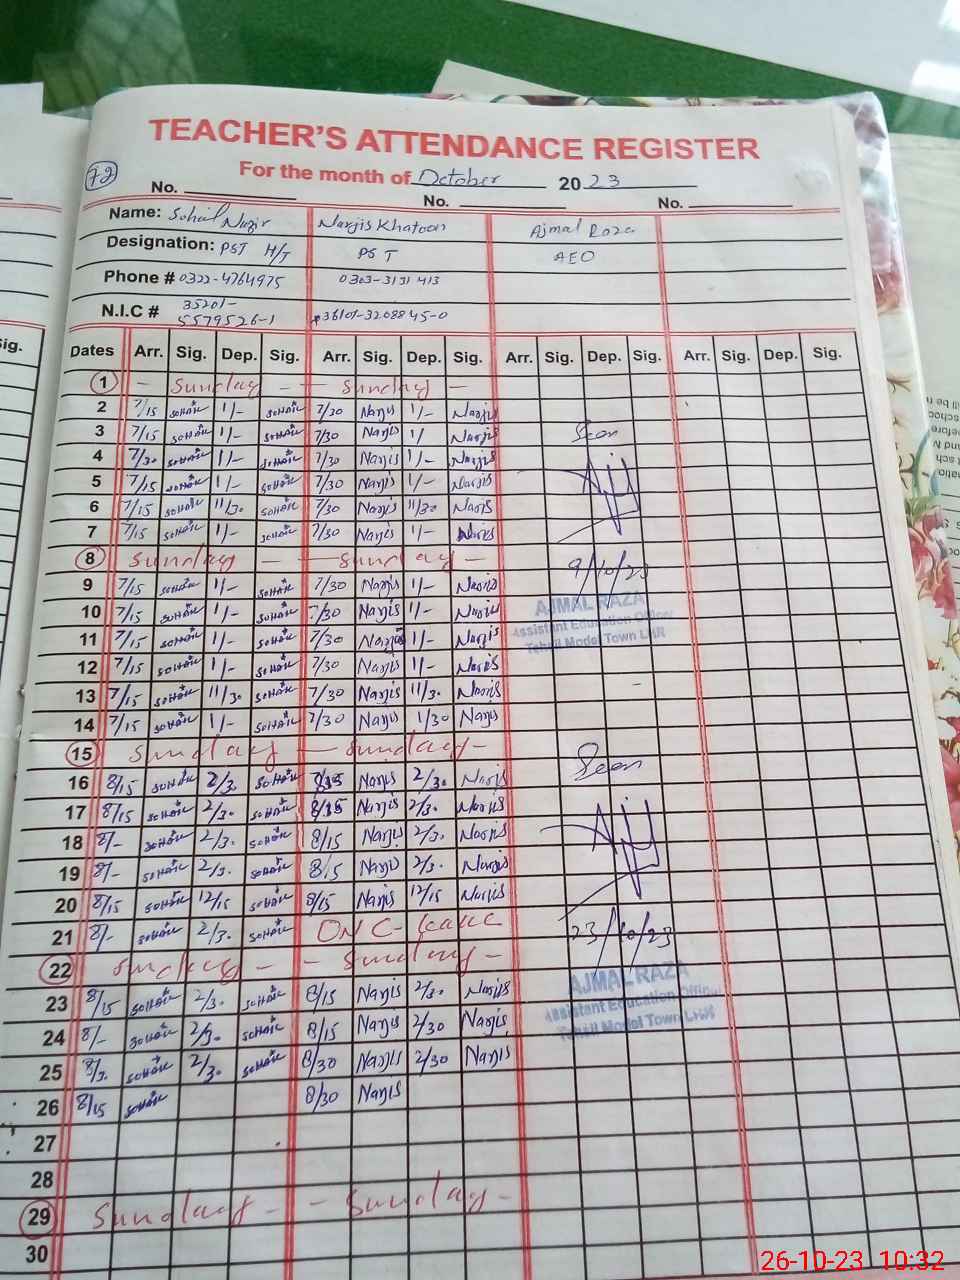 TEACHER'S ATTENDANCE REGISTER
72
For the month of October 2023
No. No. No.
Name: Sohail Nazir Narjis Khatoon Ajmal Raza
Designation: PST H/T PST AEO
Phone # 0322-4764975 0303-3131413
N.I.C # 35201-5579526-1 36101-3208845-0
Dates Arr. Sig. Dep. Sig. Arr. Sig. Dep. Sig. Arr. Sig. Dep. Sig. Arr. Sig. Dep. Sig.
1 - Sunday - - Sunday -
2 7/15 SOHAIL 1/- SOHAIL 7/30 Narjis 1/- Narjis
3 7/15 SOHAIL 1/- SOHAIL 7/30 Narjis 1/ Narjis Seen
4 7/30 SOHAIL 1/- SOHAIL 7/30 Narjis 1/- Narjis
5 7/15 SOHAIL 1/- SOHAIL 7/30 Narjis 1/- Narjis
6 7/15 SOHAIL 11/30 SOHAIL 7/30 Narjis 11/30 Narjis
7 7/15 SOHAIL 1/- SOHAIL 7/30 Narjis 1/- Narjis
8 Sunday - - Sunday - 9/10/23
9 7/15 SOHAIL 1/- SOHAIL 7/30 Narjis 1/- Narjis
AJMAL RAZA
10 7/15 SOHAIL 1/- SOHAIL 7/30 Narjis 1/- Narjis
Assistant Education Officer
11 7/15 SOHAIL 1/- SOHAIL 7/30 Narjis 1/- Narjis
Tehsil Model Town LHR
12 7/15 SOHAIL 1/- SOHAIL 7/30 Narjis 1/- Narjis
13 7/15 SOHAIL 11/30 SOHAIL 7/30 Narjis 11/30 Narjis
14 7/15 SOHAIL 1/- SOHAIL 7/30 Narjis 1/30 Narjis
15 Sunday - Sunday - Seen
16 8/15 SOHAIL 2/30 SOHAIL 8/15 Narjis 2/30 Narjis
17 8/15 SOHAIL 2/30 SOHAIL 8/15 Narjis 2/30 Narjis
18 8/- SOHAIL 2/30 SOHAIL 8/15 Narjis 2/30 Narjis
19 8/- SOHAIL 2/30 SOHAIL 8/15 Narjis 2/30 Narjis
20 8/15 SOHAIL 12/15 SOHAIL 8/15 Narjis 12/15 Narjis
21 8/- SOHAIL 2/30 SOHAIL ON C-Leave 23/10/23
22 Sunday - - Sunday -
AJMAL RAZA
23 8/15 SOHAIL 2/30 SOHAIL 8/15 Narjis 2/30 Narjis
Assistant Education Officer
24 8/- SOHAIL 2/30 SOHAIL 8/15 Narjis 2/30 Narjis
Tehsil Model Town LHR
25 8/30 SOHAIL 2/30 SOHAIL 8/30 Narjis 2/30 Narjis
26 8/15 SOHAIL 8/30 Narjis
27
28
29 Sunday - - Sunday -
30
26-10-23 10:32